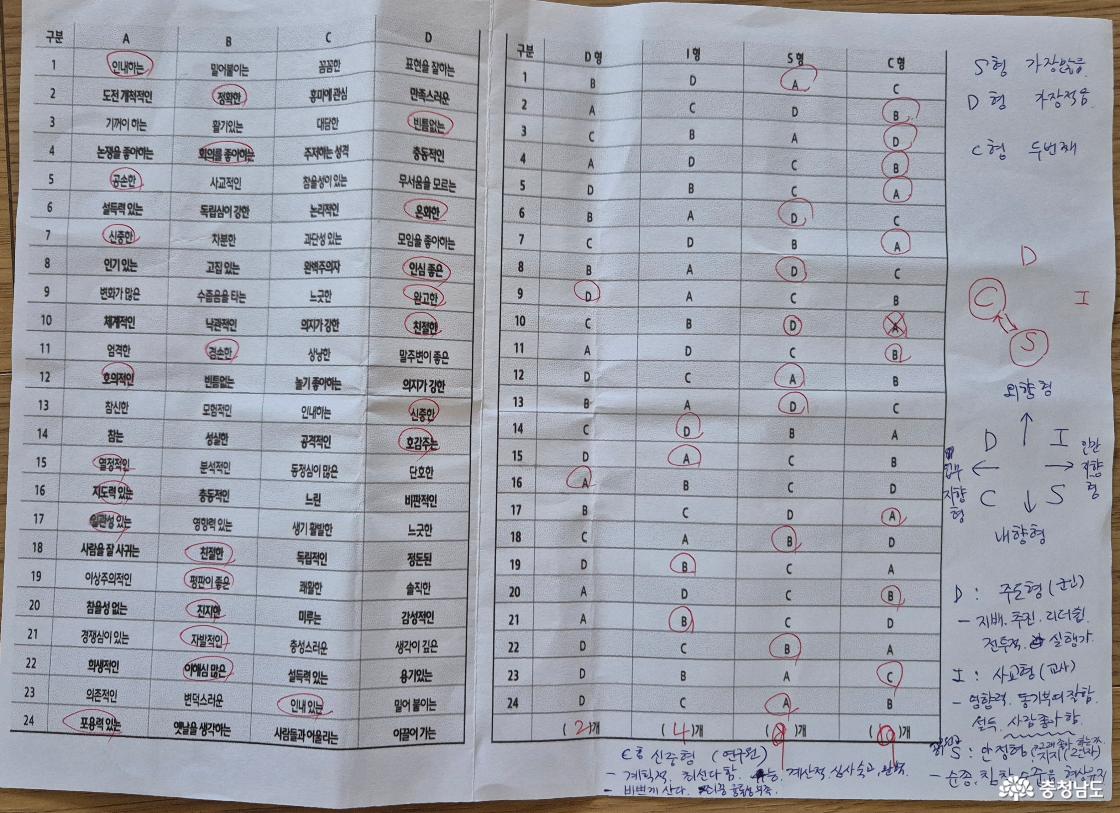 구분 A B C D
1 인내하는 밀어붙이는 꼼꼼한 표현을 잘하는
2 도전 개척적인 정확한 흥미에 관심 만족스러운
3 기꺼이 하는 활기있는 대담한 빈틈없는
4 논쟁을 좋아하는 회의를 좋아하는 주저하는 성격 충동적인
5 공손한 사교적인 참을성이 있는 무서움을 모르는
6 설득력 있는 독립심이 강한 논리적인 온화한
7 신중한 차분한 과단성 있는 모임을 좋아하는
8 인기 있는 고집 있는 완벽주의자 인심 좋은
9 변화가 많은 수줍음을 타는 느긋한 완고한
10 체계적인 낙관적인 의지가 강한 친절한
11 엄격한 겸손한 상냥한 말주변이 좋은
12 호의적인 빈틈없는 놀기 좋아하는 의지가 강한
13 참신한 모험적인 인내하는 신중한
14 참는 성실한 공격적인 호감주는
15 열정적인 분석적인 동정심이 많은 단호한
16 지도력 있는 충동적인 느린 비판적인
17 일관성 있는 영향력 있는 생기 활발한 느긋한
18 사람을 잘 사귀는 친절한 독립적인 정돈된
19 이상주의적인 평판이 좋은 쾌활한 솔직한
20 참을성 없는 진지한 미루는 감성적인
21 경쟁심이 있는 자발적인 충성스러운 생각이 깊은
22 희생적인 이해심 많은 설득력 있는 용기있는
23 의존적인 변덕스러운 인내 있는 밀어 붙이는
24 포용력 있는 옛날을 생각하는 사람들과 어울리는 이끌어 가는
구분 D 형 I 형 S 형 C 형
1 B D A C
2 A C D B
3 C B A D
4 A D C B
5 D B C A
6 B A D C
7 C D B A
8 B A D C
9 D A C B
10 C B D A
11 A D C B
12 D C A B
13 B A D C
14 C D B A
15 D A C B
16 A B C D
17 B C D A
18 C A B D
19 D B C A
20 A D C B
21 A B C D
22 D C B A
23 D B A C
24 D C A B
( 2 )개 ( 4 )개 ( )개 ( )개
C형 신중형 (연구원)
- 계획적, 최선다함. 계산적 심사숙고, 완벽.
- 바쁘게 산다.
S형 가장많음
D형 가장적음
C형 두번째
D
C I
S
외향형
D I
업무 지향형 인간 지향형
C S
내향형
D : 주도형 (군인)
- 지배. 추진. 리더쉽.
전투적. 실행가
I : 사교형 (교사)
- 영향력. 동기부여 잘함.
설득. 사람좋아함.
S : 안정형
- 순종, 침착, 현상유지
충청남도